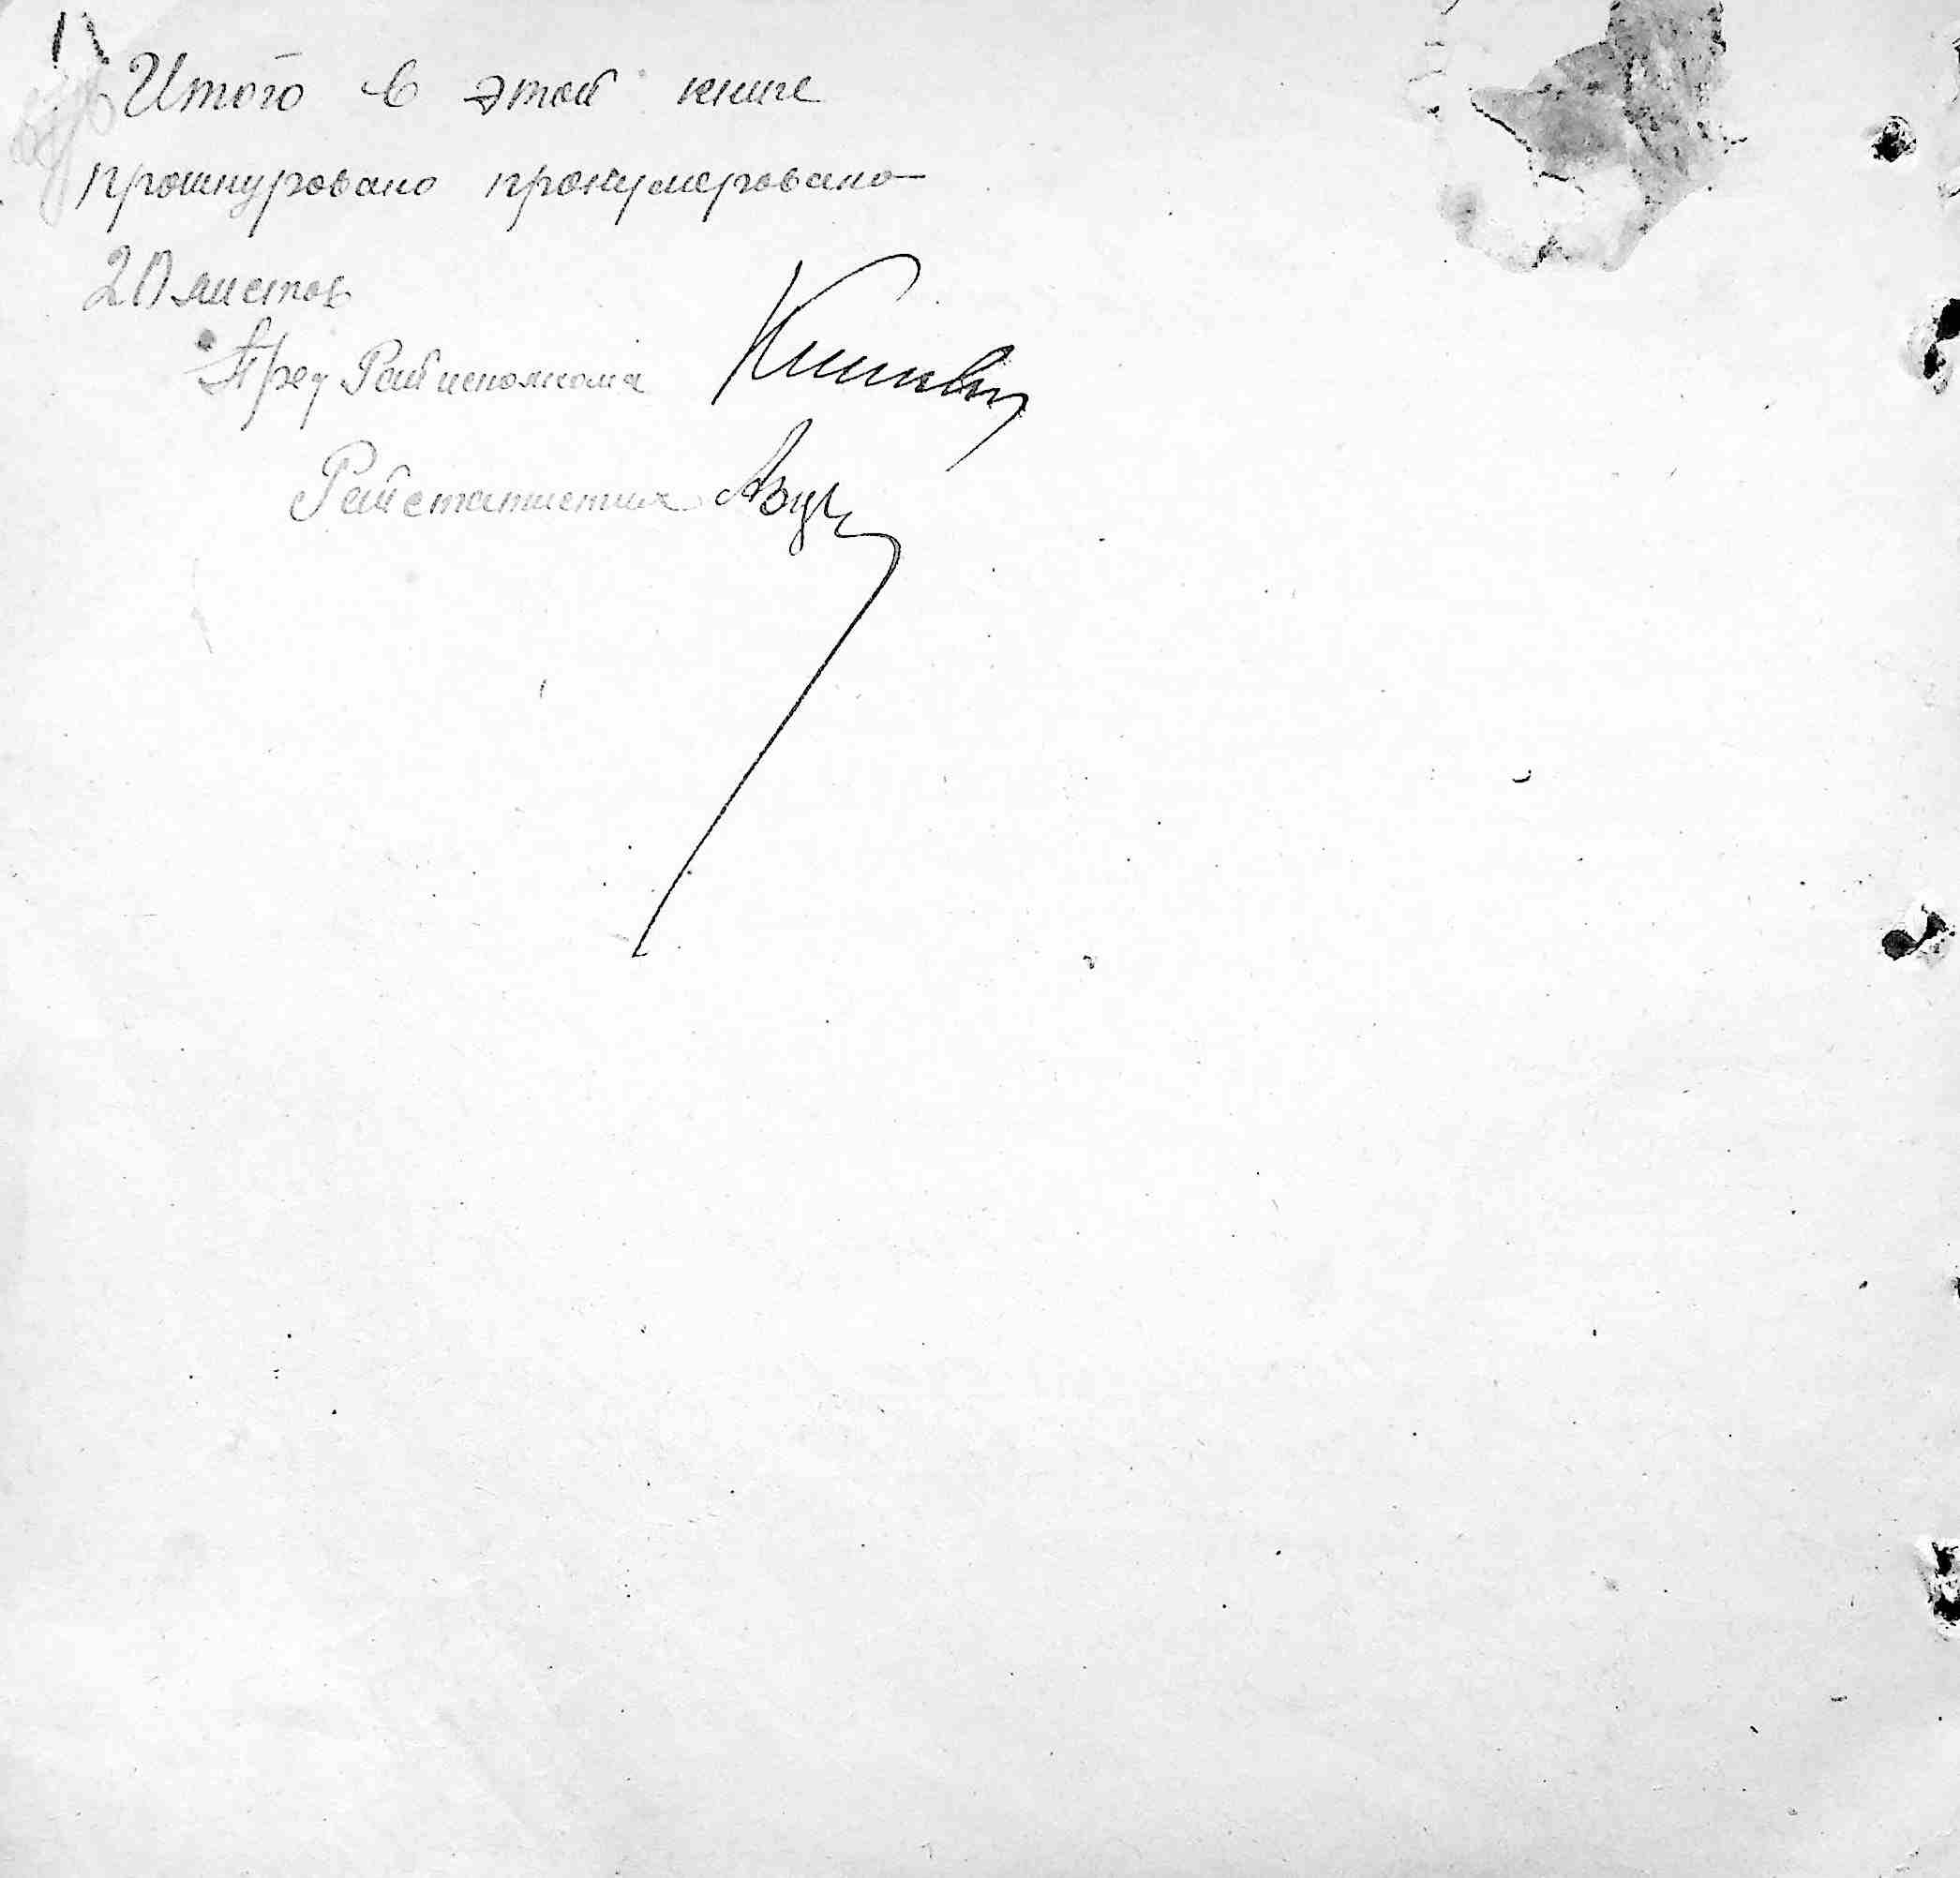 Итого в этой книге
прошнуровано пронумеровано
20 листов
Пред Райисполкома
Райстатистик